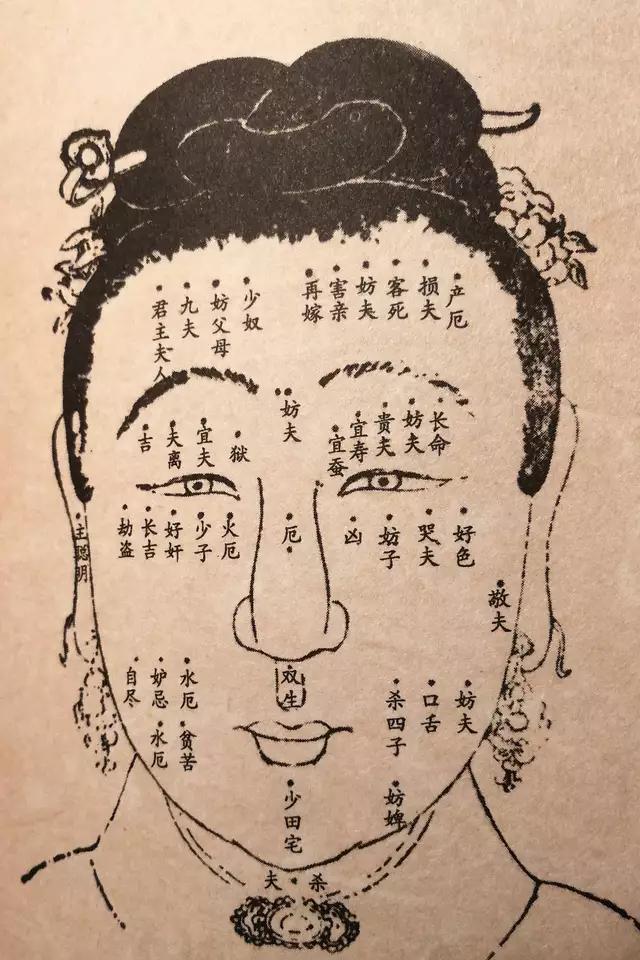 君主夫人
九夫
妨父母
少奴
再嫁
害亲
妨夫
客死
损夫
产厄
吉
夫离
宜夫
狱
妨夫
宜蚕
宜寿
贵夫
妨夫
长命
主聪明
劫盗
长吉
好奸
少子
火厄
厄
凶
妨子
哭夫
好色
敬夫
自尽
妒忌
水厄
水厄
贫苦
双生
杀四子
口舌
妨夫
少田宅
妨婢
夫杀